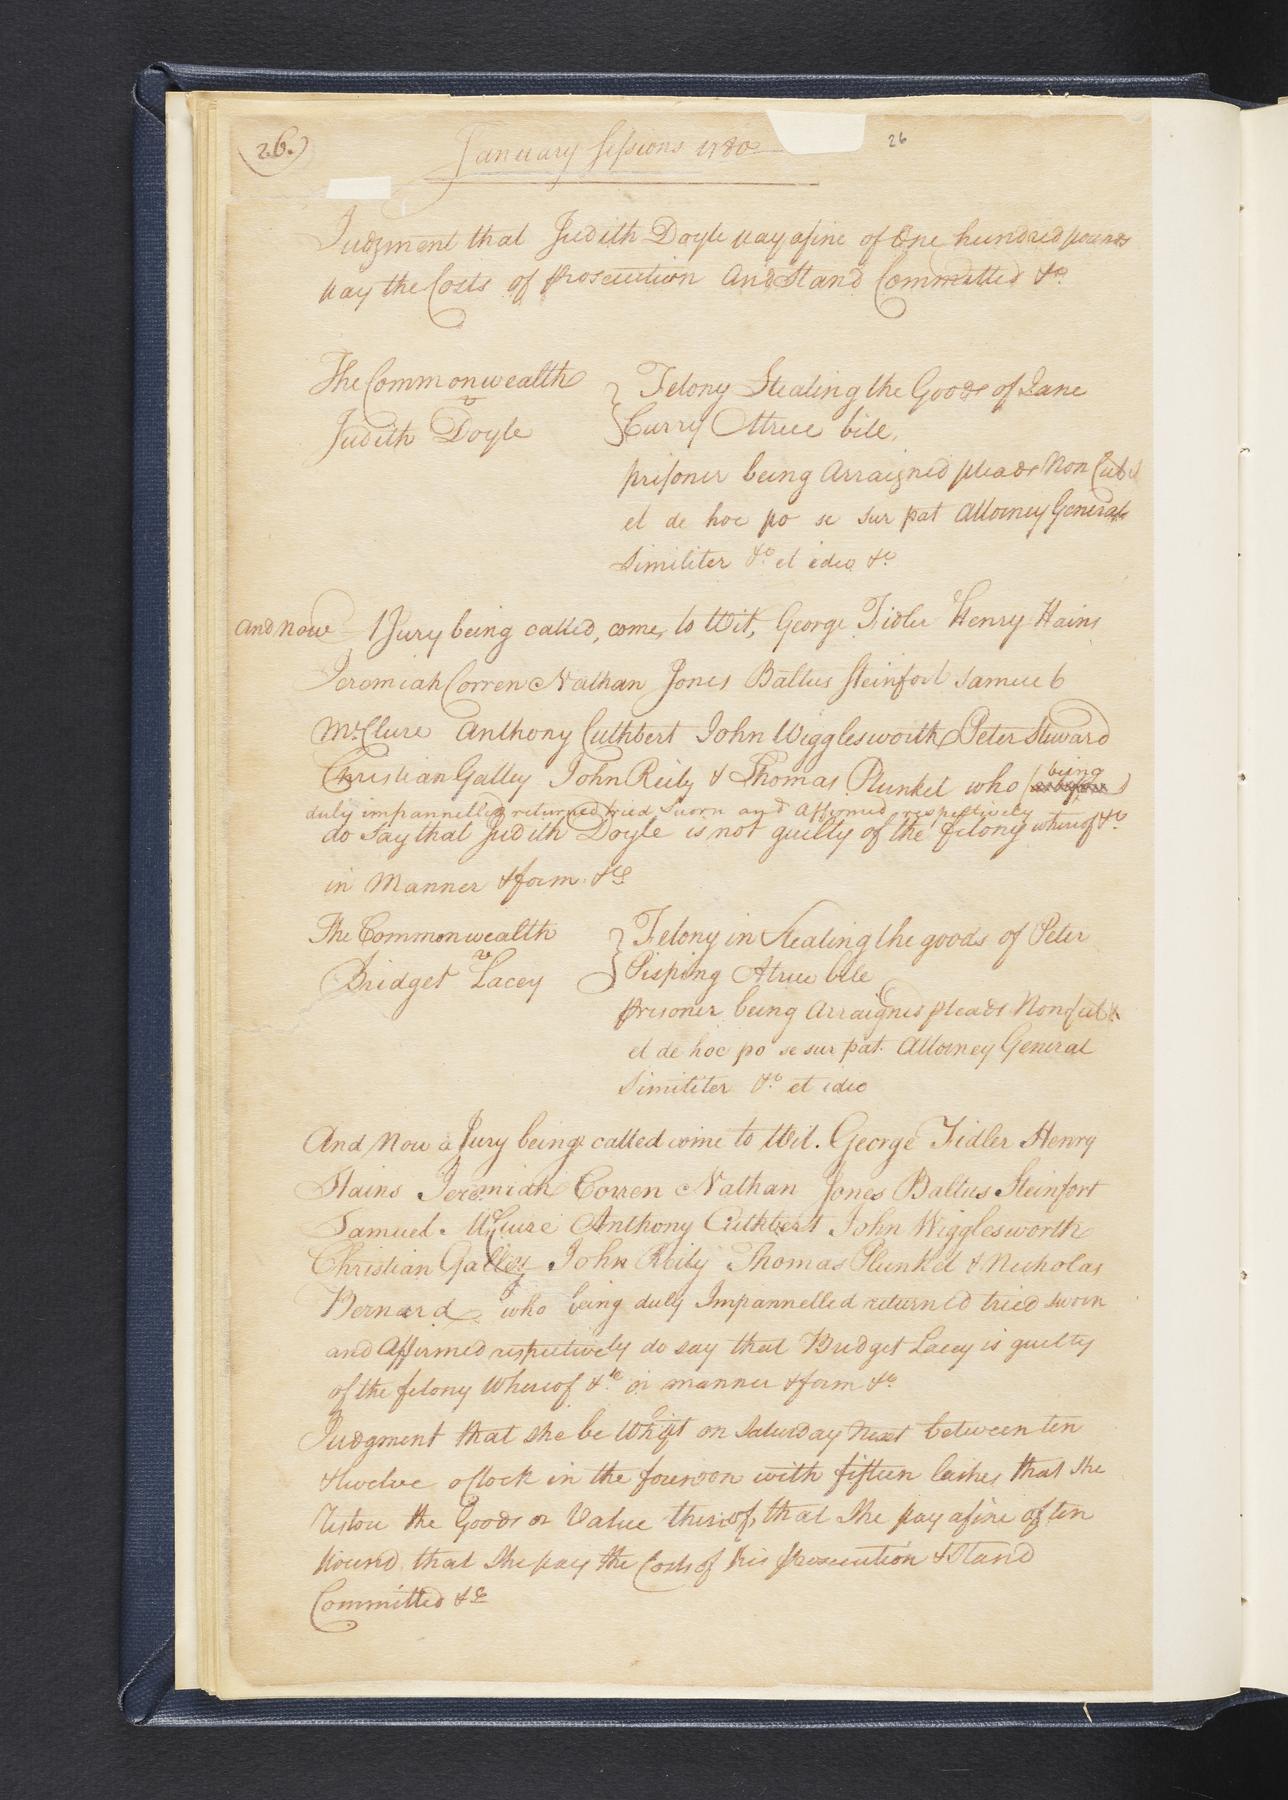 26.) January Sessions 1780 26
Judgment that Judith Doyle pay a fine of One hundred pounds
pay the Costs of Prosecution And Stand Committed &c
The Commonwealth
v
Judith Doyle
Felony Stealing the Goods of Jane
Curry A true bill.
prisoner being Arraigned pleads Non Cul &
et de hoc po se sur pat Attorney General
Similiter &c et ideo &c
And Now A Jury being called, come, to Wit, George Fidler Henry Hains
Jeremiah Corren Nathan Jones Baltus Steinfort Samuel
McClure Anthony Cuthbert John Wigglesworth Peter Steward
Christian Galley John Reily & Thomas Plunket who being
duly impannelled returned tried Sworn and Affirmed respectively
do Say that Judith Doyle is not guilty of the felony whereof &c
in Manner & form &c
The Commonwealth
v
Bridget Lacey
Felony in Stealing the goods of Peter
Pisping A true bill
prisoner being Arraigned pleads Non Cul &
et de hoc po se sur pat. Attorney General
Similiter &c et ideo
And Now a Jury being called come to Wit. George Fidler Henry
Hains Jeremiah Corren Nathan Jones Baltus Steinfort
Samuel McClure Anthony Cuthbert John Wigglesworth
Christian Galley John Reily Thomas Plunket & Nicholas
Bernard who being duly Impannelled returned tried sworn
and Affirmed respectively do say that Bridget Lacey is guilty
of the felony Whereof &c in manner & form &c
Judgment that she be Whipt on Saturday Next between ten
& twelve oClock in the forenoon with fifteen lashes that she
restore the Goods or Value thereof, that She pay a fine of ten
pound that She pay the Costs of this prosecution & Stand
Committed &c